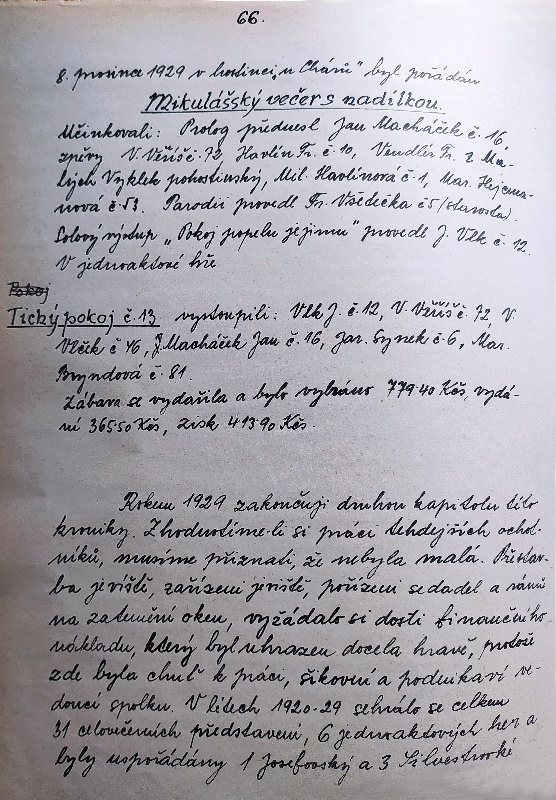 66.
8. prosince 1929 v hostinci „u Chárů" byl pořádán
Mikulášský večer s nadílkou.
Učinkovali: Prolog přednesl Jan Macháček č. 16,
zpěvy V. Vžúš č. 72, Havlín Fr. č. 10, Vendlér Fr. z Ma-
lých Vyklek pohostinský, Mil. Havlínová č. 1, Mar. Hejcma-
nová č. 53. Parodii provedl Fr. Všetečka č 5 /starosta/.
Solový výstup „Pokoj popelu jejímu" provedl J. Vlk č. 12.
V jednoaktové hře
Pokoj
Tichý pokoj č. 13 vystoupili: Vlk J. č. 12, V. Vžúš č. 72, V.
Vlček č 46, J. Macháček Jan č. 16, Jar. Synek č. 6, Mar.
Bryndová č. 81.
Zábava se vydařila a bylo vybráno 779·40 Kčs, vydá-
ní 365·50 Kčs, zisk 413·90 Kčs.
Rokem 1929 zakončuji druhou kapitolu této
kroniky. Zhodnotíme-li si práci tehdejších ochot-
níků, musíme přiznati, že nebyla malá. Přestav-
ba jeviště, zařízení jeviště, pořízení sedadel a rámů
na zatemění oken, vyžádalo si dosti finančního
nákladu, který byl uhrazen docela hravě, protože
zde byla chuť k práci, šikovní a podnikaví ve-
doucí spolku. V létech 1920-29 sehrálo se celkem
31 celovečerních představení, 6 jednoaktových her a
byly uspořádány 1 Josefovský a 3 Silvestrovské